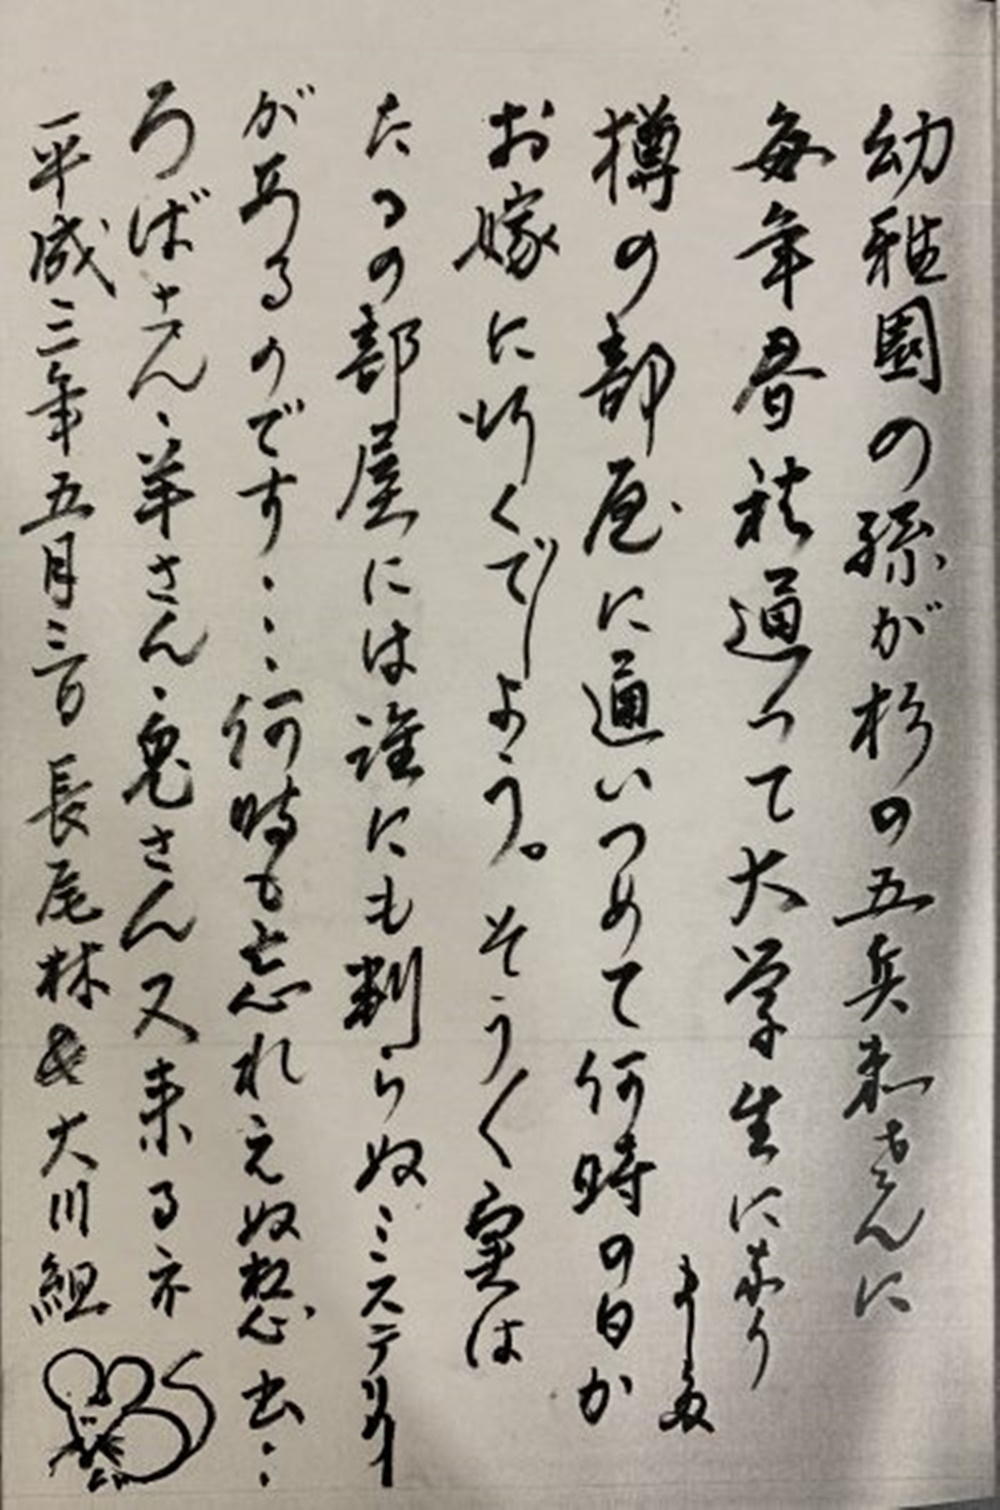 幼稚園の孫が杉の五兵衛さんに
毎年春秋通って大学生になり
ました
樽の部屋に通いつめて何時の日か
お嫁に行くでしょう。そう〱実は
たるの部屋には誰にも判らぬミステリー
があるのです・・・何時も忘れえぬ想出・・
ろばさん、羊さん、兎さん又来るネ
平成三年五月三日 長尾林&大川組